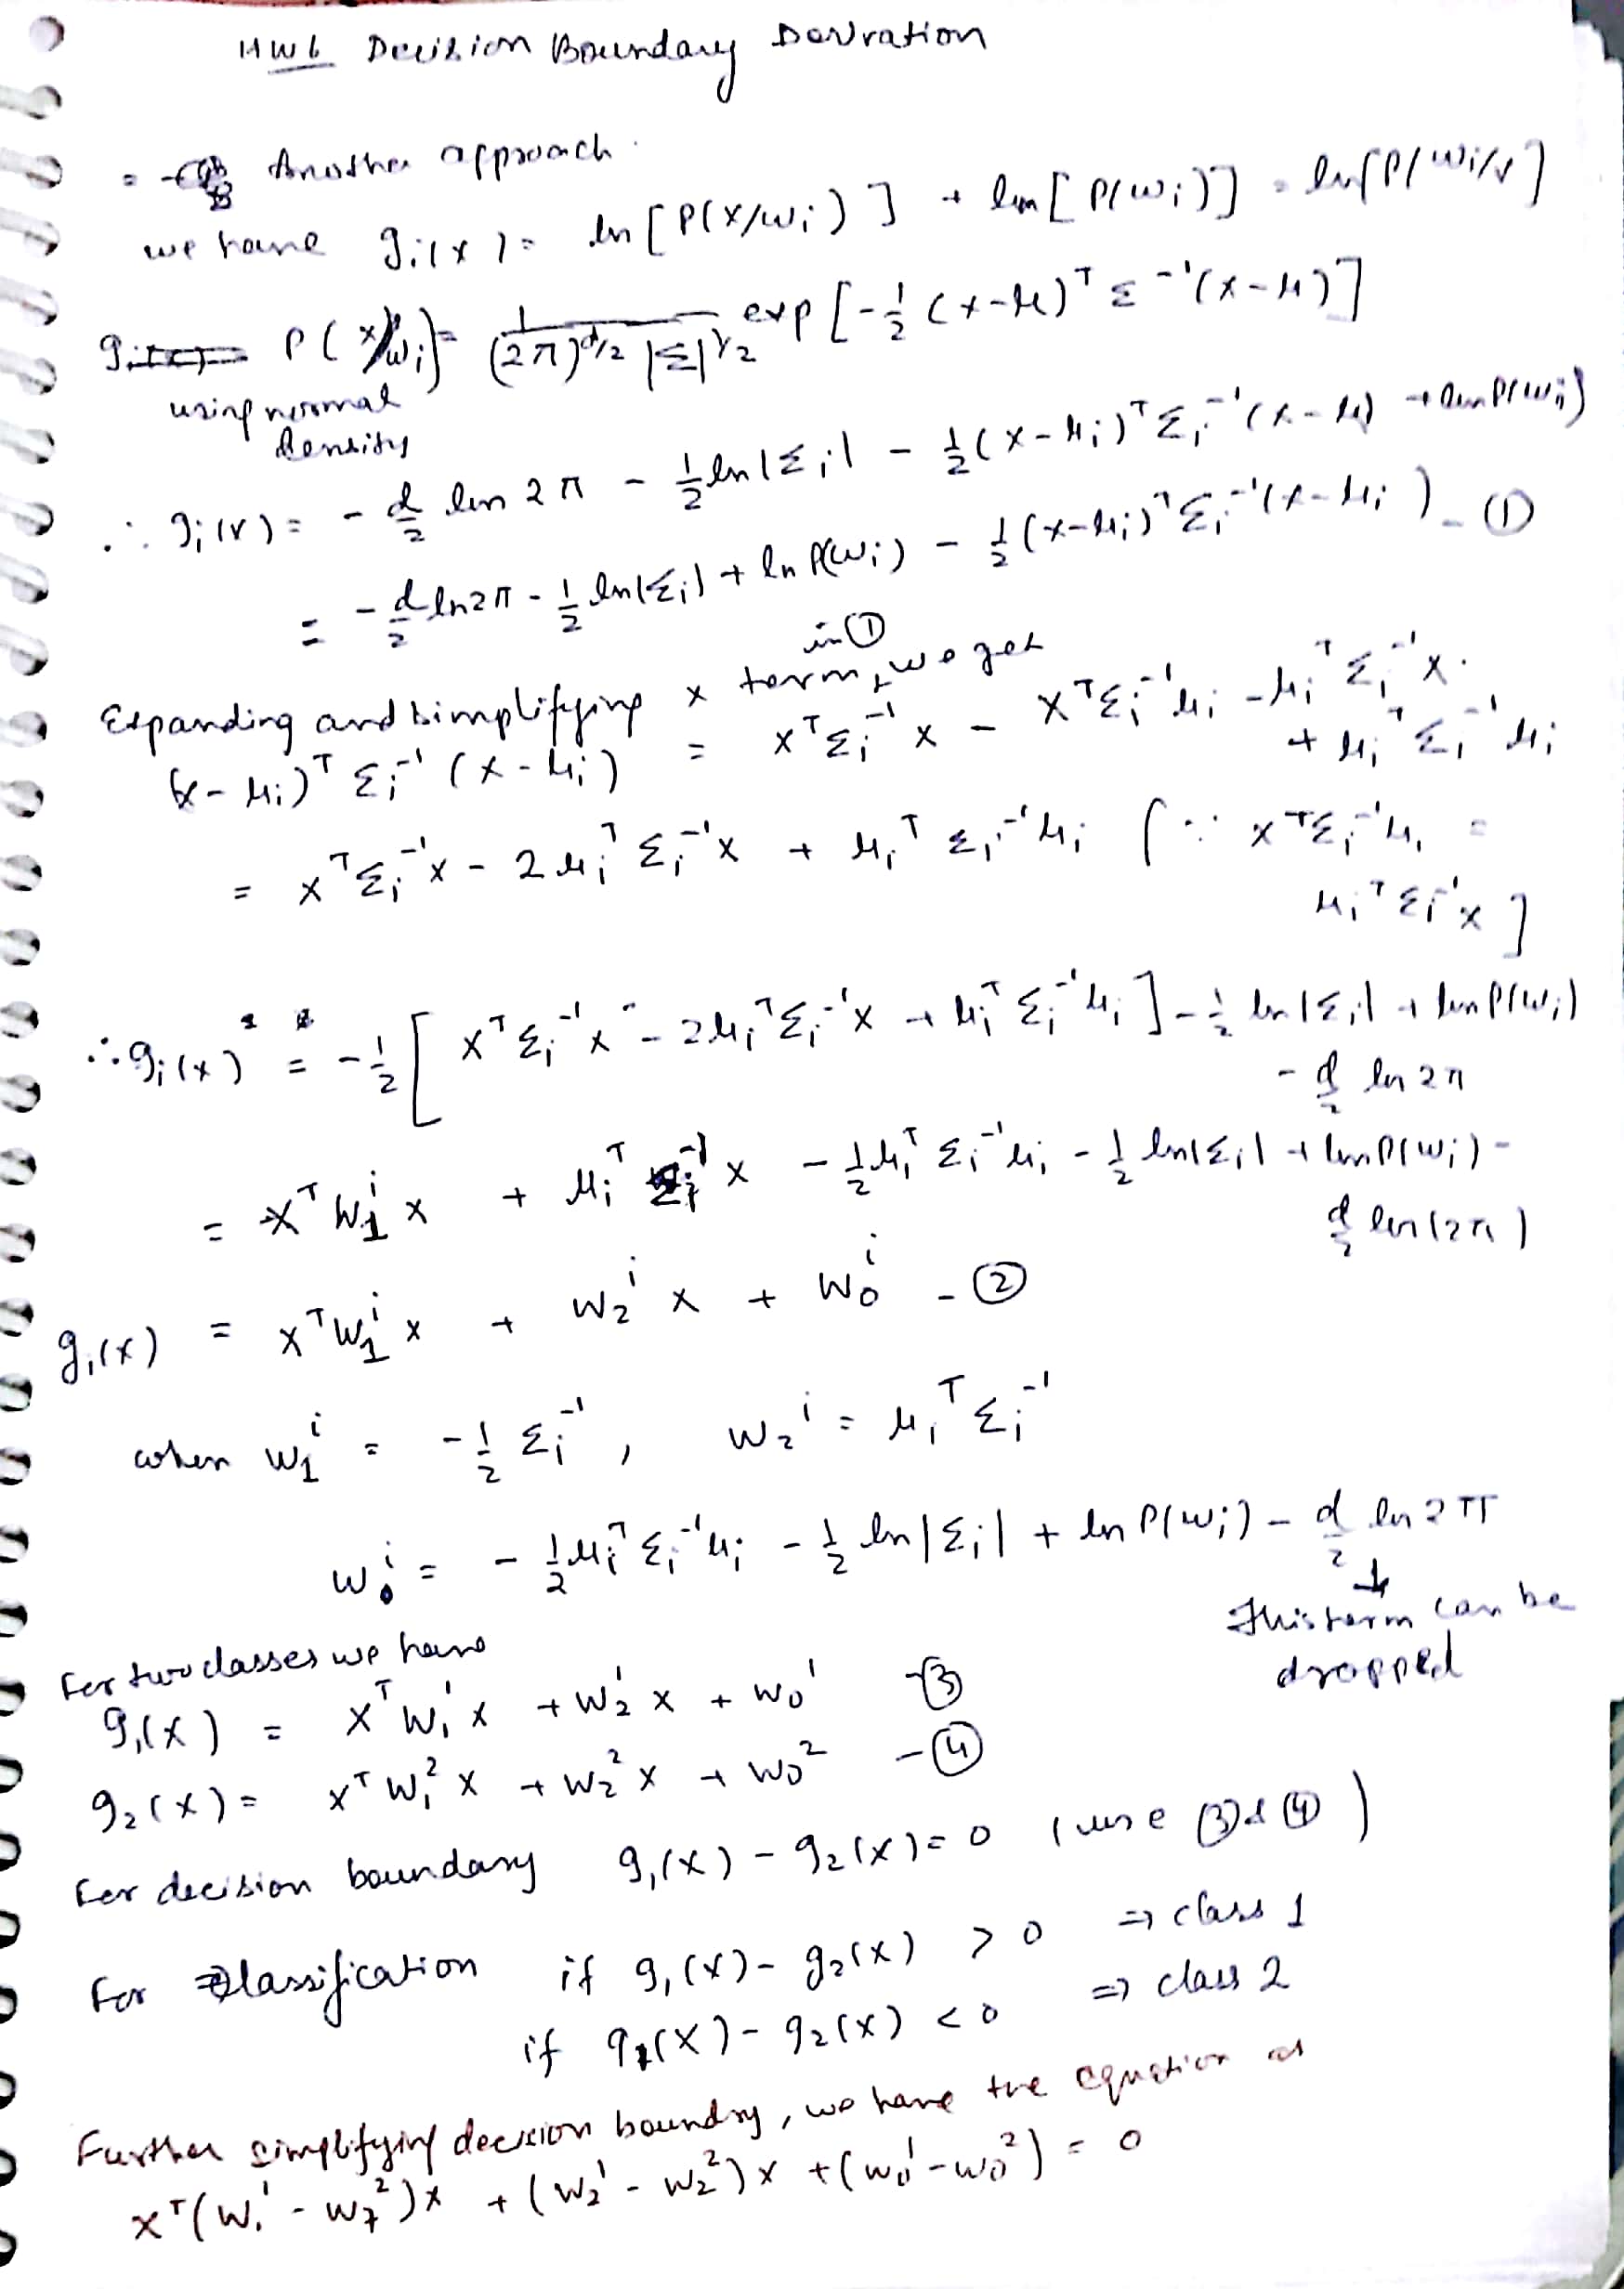 HW6 Decision Boundary Derivation
Another approach.
we have gi(x) = ln[P(x/wi)] + ln[P(wi)] = ln[P(wi/x)]
P(x/wi) = 1/((2π)^{d/2} |Σ|^{1/2}) exp[-1/2 (x-μ)^T Σ^{-1}(x-μ)]
using normal
density
∴ gi(x) = - d/2 ln 2π - 1/2 ln|Σi| - 1/2 (x-μi)^T Σi^{-1}(x-μi) + ln P(wi)
= - d/2 ln2π - 1/2 ln|Σi| + ln P(wi) - 1/2 (x-μi)^T Σi^{-1}(x-μi) - ①
Expanding and simplifying x term in ①, we get
(x-μi)^T Σi^{-1} (x-μi) = x^T Σi^{-1} x - x^T Σi^{-1} μi - μi^T Σi^{-1} x
+ μi^T Σi^{-1} μi
= x^T Σi^{-1} x - 2 μi^T Σi^{-1} x + μi^T Σi^{-1} μi [∵ x^T Σi^{-1} μi =
μi^T Σi^{-1} x]
∴ gi(x) = - 1/2 [x^T Σi^{-1} x - 2μi^T Σi^{-1} x + μi^T Σi^{-1} μi] - 1/2 ln|Σi| + ln P(wi)
- d/2 ln 2π
= x^T W1^i x + μi^T Σi^{-1} x - 1/2 μi^T Σi^{-1} μi - 1/2 ln|Σi| + ln P(wi) -
d/2 ln(2π)
gi(x) = x^T W1^i x + W2^i x + W0^i - ②
when W1^i = - 1/2 Σi^{-1}, W2^i = μi^T Σi^{-1}
W0^i = - 1/2 μi^T Σi^{-1} μi - 1/2 ln|Σi| + ln P(wi) - d/2 ln 2π
↓
This term can be
dropped
For two classes we have
g1(x) = x^T W1^1 x + W2^1 x + W0^1 - ③
g2(x) = x^T W1^2 x + W2^2 x + W0^2 - ④
For decision boundary g1(x) - g2(x) = 0 (use ③ & ④)
For classification if g1(x) - g2(x) > 0 ⇒ class 1
if g1(x) - g2(x) < 0 ⇒ class 2
Further simplifying decision boundry, we have the equation as
x^T(W1^1 - W1^2)x + (W2^1 - W2^2)x + (W0^1 - W0^2) = 0